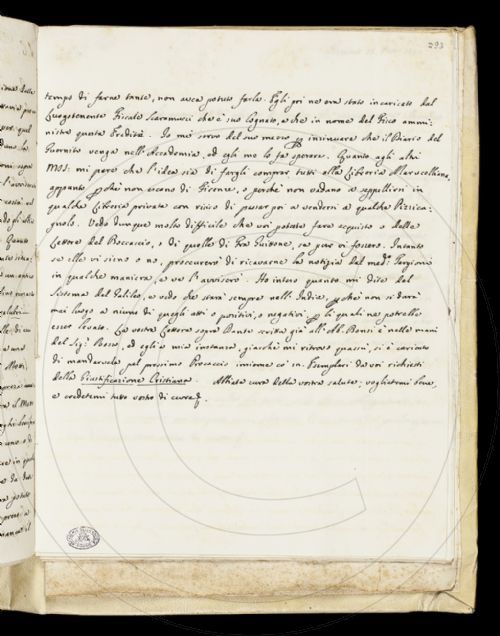 293
tempo di farne tante, non avea potuto farla. Egli poi ne era stato incaricato dal
Luogotenente Fiscale Scaramucci che è suo Cognato, e che in nome del Fisco ammi-
nistra questa Eredità. Io mi servo del suo mezzo p insinuare che il Diario del
venga nell'Accademia, ed egli me lo fa sperare. Quanto agli altri
MSS: mi pare che l'idea sia di fargli comprar tutti alla Libreria Marucelliana,
appunto p che non escano di Firenze, o perchè non vadano a seppellirsi in
qualche Libreria privata con risico di passar poi a vendersi a qualche Pizzica-
gnolo. Vedo dunque molto difficile che voi potiate fare acquisto o delle
Lettere del Boccaccio, o di quelle di Fra Guittone, se pur vi fossero. Intanto
se elle vi sieno o no, procurerò di ricavarne la notizia dal med: Targioni
in qualche maniera, e ve l'avviserò. Ho inteso quanto mi dite del
Sistema del Galileo, e vedo che starà sempre nell'Indice, p chè non si darà
mai luogo a niuno di quegli atti o positivi, o negativi p li quali ne potrebbe
esser levato. La vostra Lettera sopra Dante scritta già all'Ab. Bonsi è nelle mani
del Sig. Becci, ed egli a mia instanza, giacchè mi ritrovo quassù, si è caricato
di mandarvela pel prossimo Procaccio insieme co' Esemplari da voi richiesti
della Giustificazione Cristiana. Abbiate cura della vostra salute; vogliatemi bene,
e credetemi tutto vostro di cuore